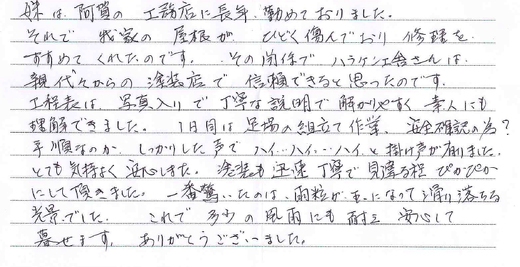 妹は、阿賀の工務店に長年勤めておりました。
それで我家の屋根がひどく傷んでおり修理を
すすめてくれたのです。その関係でハラケン工舎さんは
親代々からの塗装店で信頼できると思ったのです。
工程表は、写真入りで丁寧な説明で解かりやすく素人にも
理解できました。1日目は足場の組立て作業、安全確認の為?
手順なのか、しっかりした声でハイ…ハイ…ハイと掛け声が有りました、
とても気持よく安心しました。塗装も迅速丁寧で見違る程ぴかぴか
にして頂きました。一番驚いたのは、雨粒が玉になって滑り落ちる
光景でした。これで多少の風雨にも耐え安心して
暮せます。ありがとうございました。